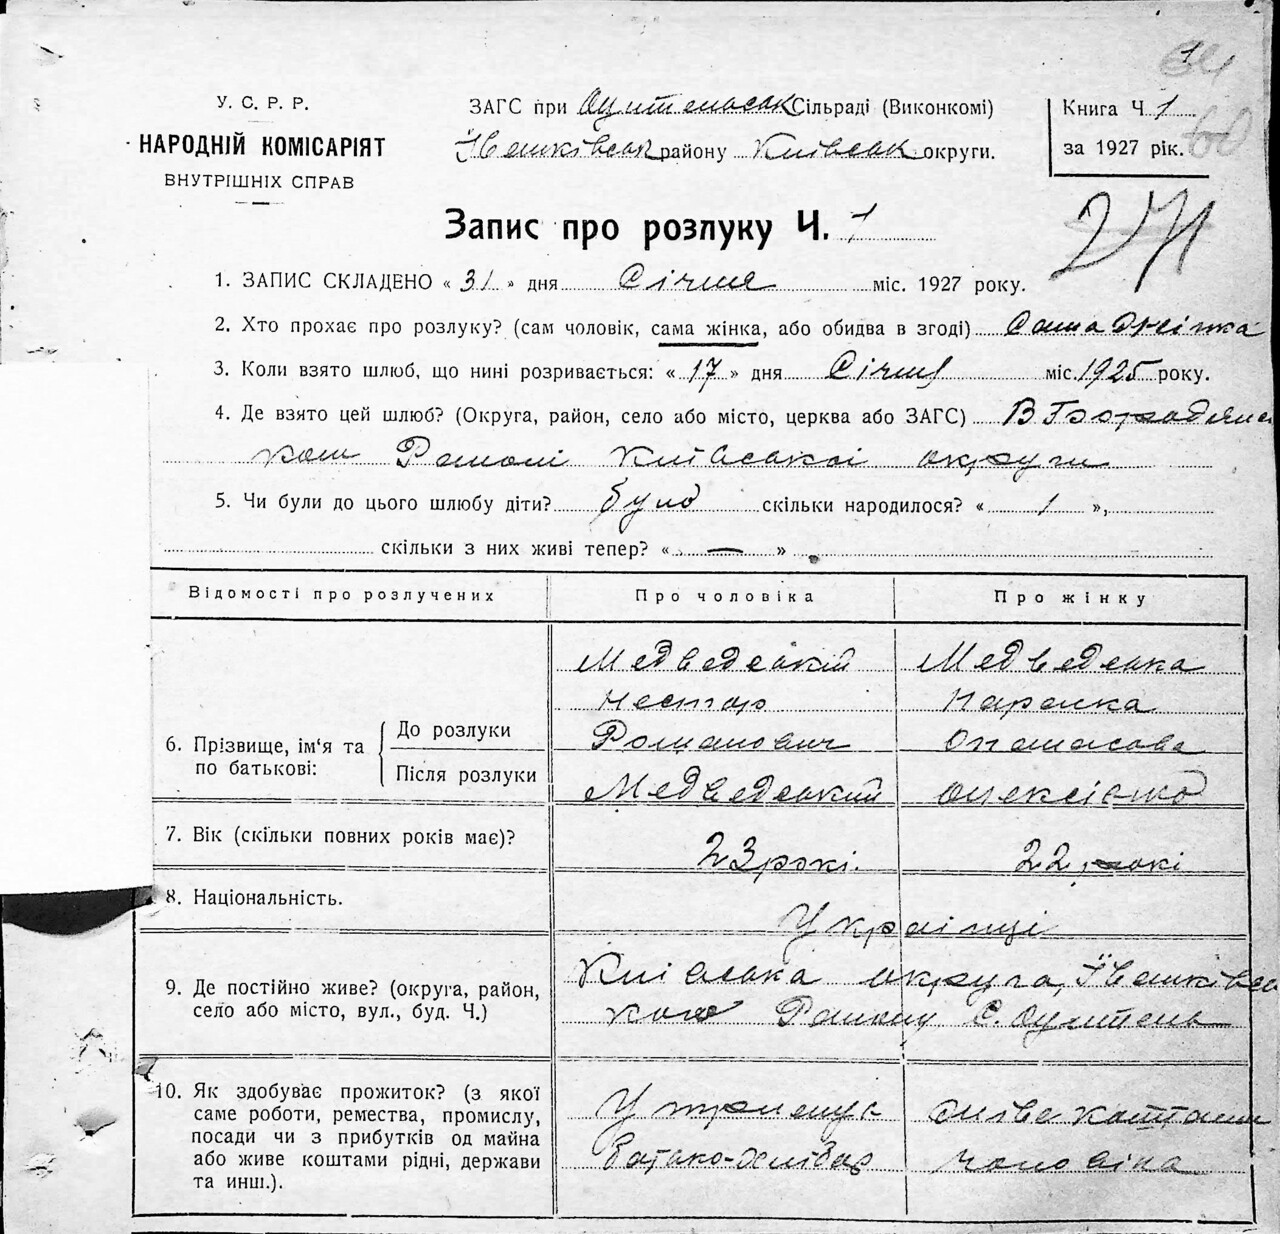 У. С. Р. Р.
НАРОДНІЙ КОМІСАРІЯТ
ВНУТРІШНІХ СПРАВ
ЗАГС при Сільраді (Виконкомі)
району Київськ округи.
Книга Ч 1
за 1927 рік.
60
271
Запис про розлуку Ч. 1
1. ЗАПИС СКЛАДЕНО « 31 » дня Січня міс. 1927 року.
2. Хто прохає про розлуку? (сам чоловік, сама жінка, або обидва в згоді) Сама жінка
3. Коли взято шлюб, що нині розривається: « 17 » дня Січня міс. 1925 року.
4. Де взято цей шлюб? (Округа, район, село або місто, церква або ЗАГС)
ком Районі Київської округи
5. Чи були до цього шлюбу діти? було скільки народилося? « 1 »,
скільки з них живі тепер? « — »
Відомості про розлучених
Про чоловіка
Про жінку
6. Прізвище, ім'я та по батькові:
До розлуки
Після розлуки
Медведський
Нестор
Романович
Медведський
Медведська
Опанасова
7. Вік (скільки повних років має)?
23 рокі.
22 рокі
8. Національність.
Українці
9. Де постійно живе? (округа, район,
село або місто, вул., буд. Ч.)
Київська округа,
кого Району С.
10. Як здобуває прожиток? (з якої
саме роботи, ремества, промислу,
посади чи з прибутків од майна
або живе коштами рідні, держави
та инш.).
батько-хлібор
живе коштами
чоловіка